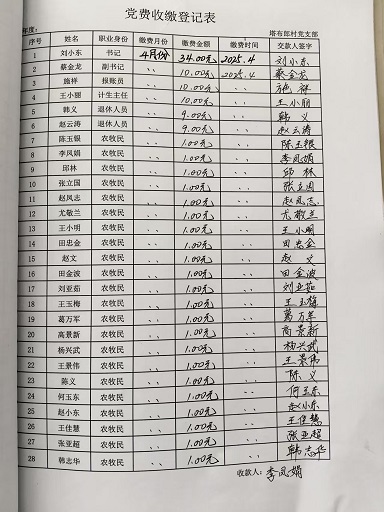 党费收缴登记表
年度： 塔布郎村党支部
序号 姓名 职业身份 缴费月份 缴费金额 缴费时间 交款人签字
1 刘小东 书记 4月份 34.00元 2025.4 刘小东
2 蔡金龙 副书记 、、 10.00元 2025.4 蔡金龙
3 施祥 报账员 、、 10.00元 、、 施祥
4 王小丽 计生主任 、、 10.00元 、、 王小丽
5 韩义 退休人员 、、 9.00元 、、 韩义
6 赵云涛 退休人员 、、 9.00元 、、 赵云涛
7 陈玉银 农牧民 、、 1.00元 、、 陈玉银
8 李凤娟 农牧民 、、 1.00元 、、 李凤娟
9 邱林 农牧民 、、 1.00元 、、 邱林
10 张立国 农牧民 、、 1.00元 、、 张立国
11 赵凤志 农牧民 、、 1.00元 、、 赵凤志
12 尤敬兰 农牧民 、、 1.00元 、、 尤敬兰
13 王小明 农牧民 、、 1.00元 、、 王小明
14 田忠金 农牧民 、、 1.00元 、、 田忠金
15 赵文 农牧民 、、 1.00元 、、 赵文
16 田金波 农牧民 、、 1.00元 、、 田金波
17 刘亚茹 农牧民 、、 1.00元 、、 刘亚茹
18 王玉梅 农牧民 、、 1.00元 、、 王玉梅
19 葛万军 农牧民 、、 1.00元 、、 葛万军
20 高景新 农牧民 、、 1.00元 、、 高景新
21 杨兴武 农牧民 、、 1.00元 、、 杨兴武
22 王景伟 农牧民 、、 1.00元 、、 王景伟
23 陈义 农牧民 、、 1.00元 、、 陈义
24 何玉东 农牧民 、、 1.00元 、、 何玉东
25 赵小东 农牧民 、、 1.00元 、、 赵小东
26 王佳慧 农牧民 、、 1.00元 、、 王佳慧
27 张亚超 农牧民 、、 1.00元 、、 张亚超
28 韩志华 农牧民 、、 1.00元 、、 韩志华
收款人：李凤娟